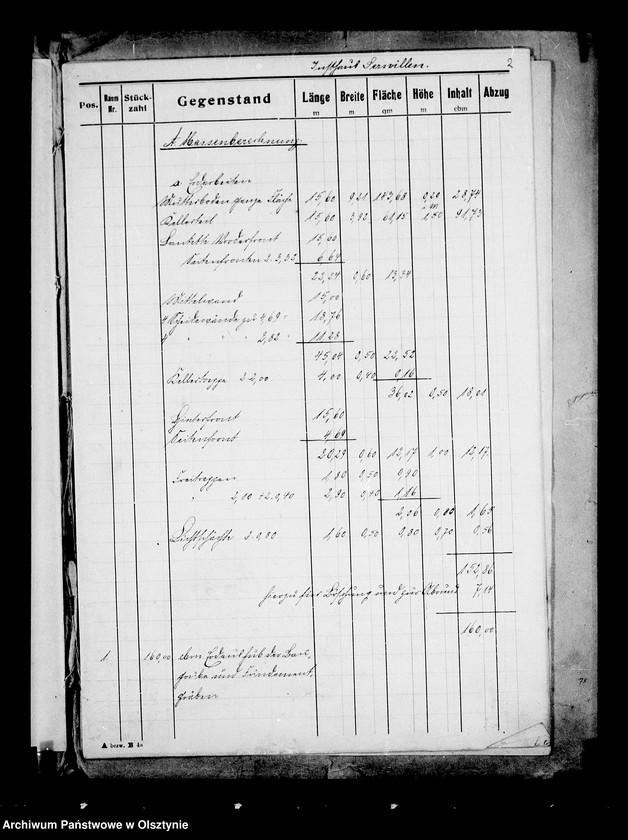 Insthaus Serwillen. 2
Pos. Raum Nr. Stück-zahl Gegenstand Länge m Breite m Fläche qm Höhe m Inhalt cbm Abzug
A. Massenberechnung
a. Erdarbeiten
Mutterboden ganze Fläche 15,60 9,21 143,68 0,20 28,74
Kellerteil 15,60 3,92 61,15 1,50 91,73
Bankette Vorderfront 15,60
Seitenfronten 2 . 3,32 6,64
22,24 0,60 13,34
Mittelwand 15,00
4 Scheidewände zu 4,69 = 18,76
4 " " " 2,82 = 11,28
45,04 0,50 22,52
Kellertreppe 2 . 2,00 4,00 0,40 0,16
36,02 0,50 18,01
Hinterfront 15,60
Seitenfront 4,69
20,29 0,60 12,17 1,00 12,17
Freitreppen 1,80 0,50 0,90
" 2,10 + 2 . 0,40 2,90 0,40 1,16
2,06 0,80 1,65
Lichtschächte 2 . 0,80 1,60 0,50 0,80 0,70 0,56
152,86
hierzu für Böschung und zur Abrund 7,14
160,00
1. 160,00 cbm Erdaushub der Bau-
grube und Fundament-
gräben
A bezw. B 4a
Archiwum Państwowe w Olsztynie